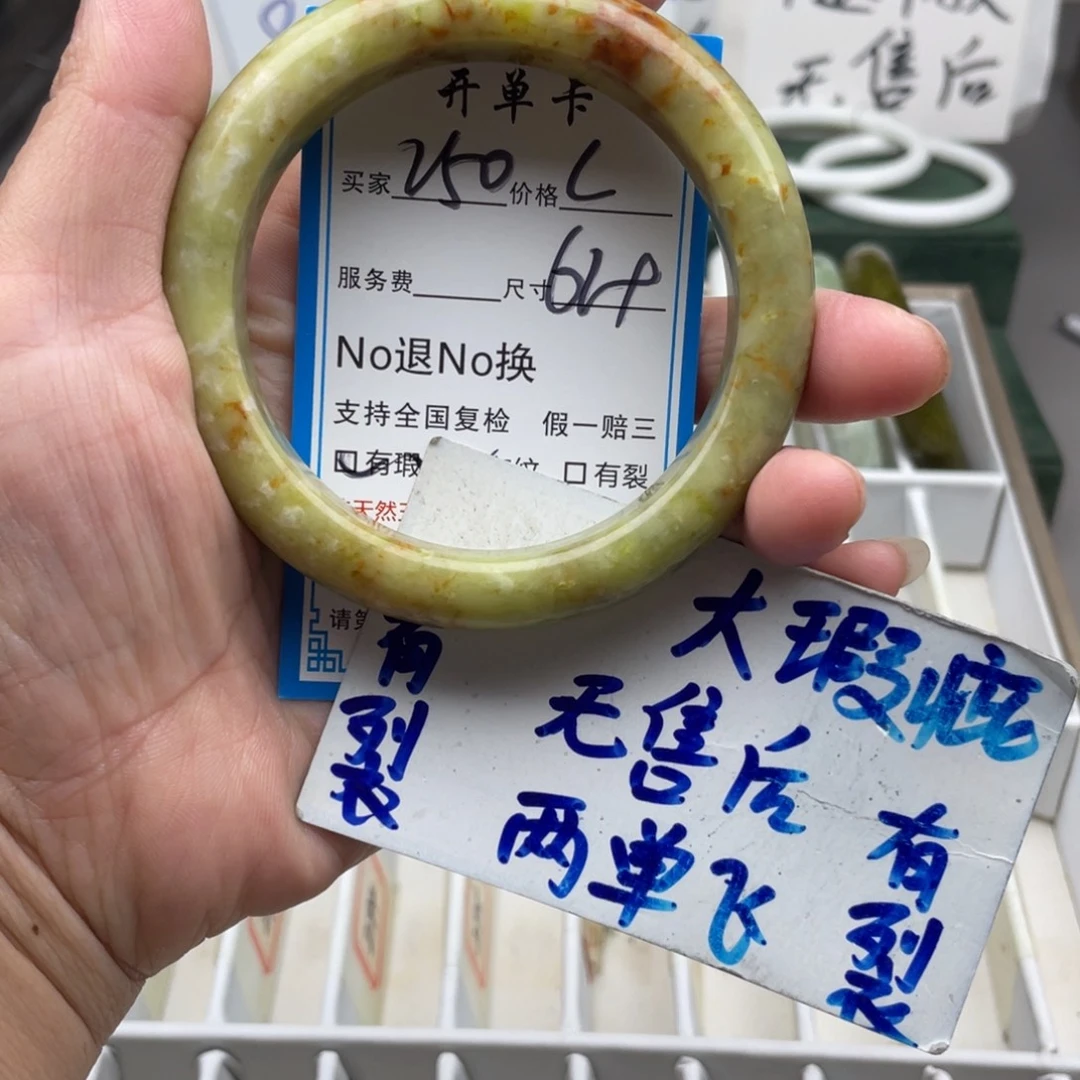 无售后
开单卡
买家 250 价格 L
服务费 尺寸
No退No换
支持全国复检 假一赔三
口有瑕 纹 口有裂
天然
请
大瑕疵
无售后
两单飞
有裂
有裂